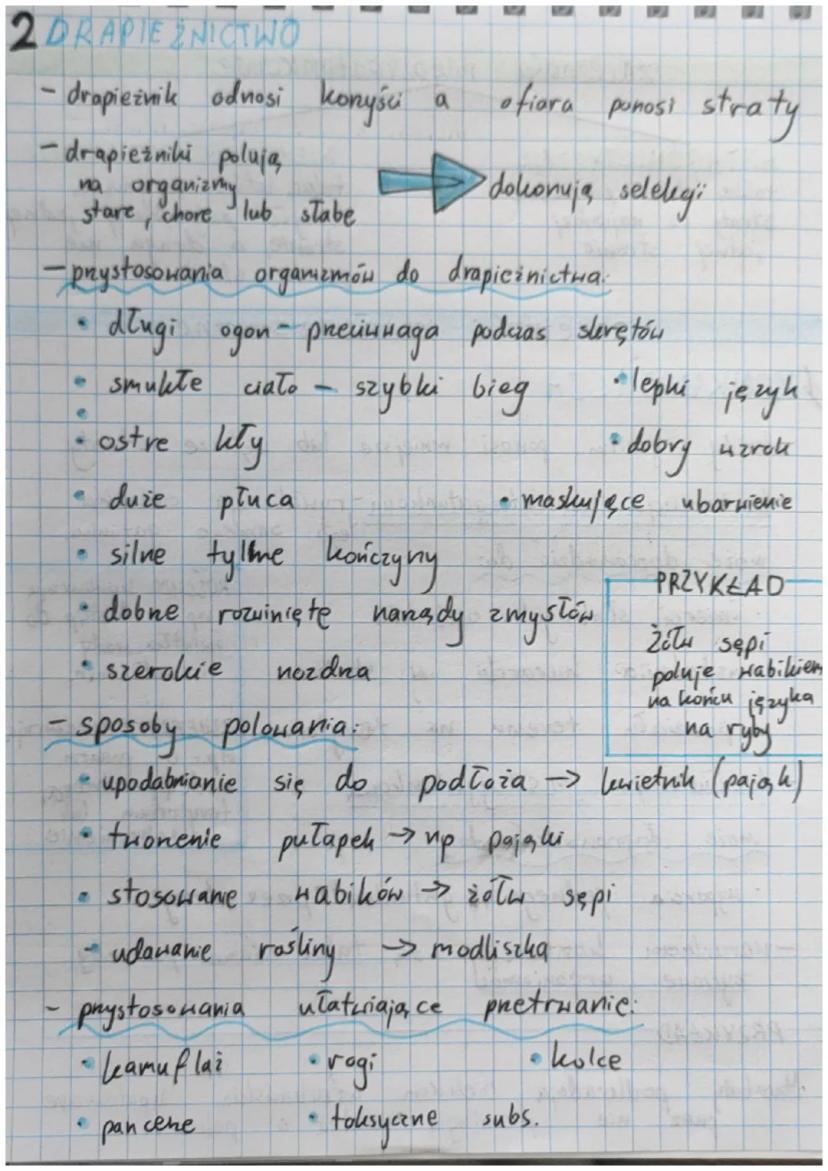 2 DRAPIEŻNICTWO
- drapieżnik odnosi korzyści a ofiara ponosi straty
- drapieżniki polują
na organizmy
stare, chore lub słabe
dokonują selekcji
- przystosowania organizmów do drapieżnictwa:
• długi ogon - przeciwwaga podczas skrętów
• smukłe ciało - szybki bieg
• lepki język
• ostre kły
• dobry wzrok
• duże płuca
• maskujęce ubarwienie
• silne tylne kończyny
• dobrze rozwinięte narządy zmysłów
• szerokie nozdrza
PRZYKŁAD
Żółw sępi
poluje wabikiem
na końcu języka
na ryby
- sposoby polowania:
• upodabnianie się do podłoża → kwietnik (pająk)
• tworzenie pułapek → np pająki
• stosowanie wabików → żółw sępi
- udawanie rośliny → modliszka
- przystosowania ułatwiające przetrwanie:
• kamuflaż
• rogi
• kolce
• pancerze
• toksyczne subs.